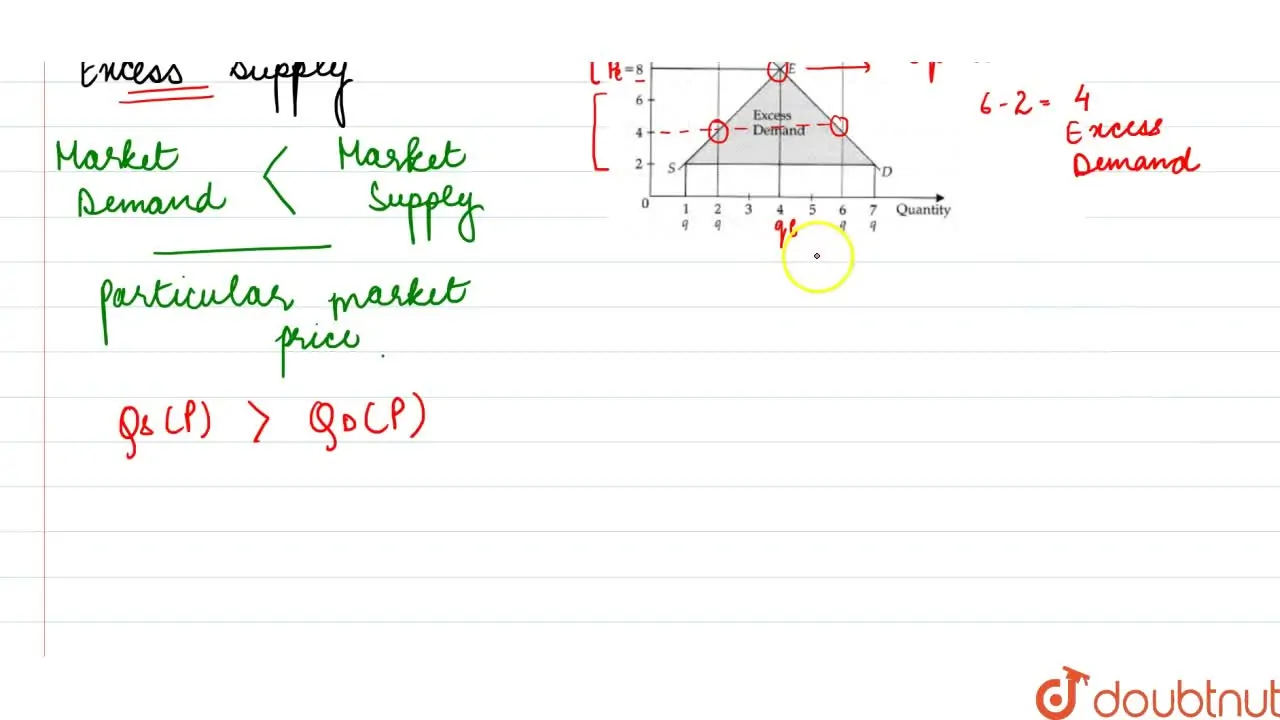 Excess Supply
Market Demand < Market Supply
particular market price.
QS(P) > QD(P)
= 8 E
6
4
2
Excess
Demand
S D
0 1 2 3 4 5 6 7 Quantity
q q qe q q
6 - 2 = 4
Excess
Demand
doubtnut